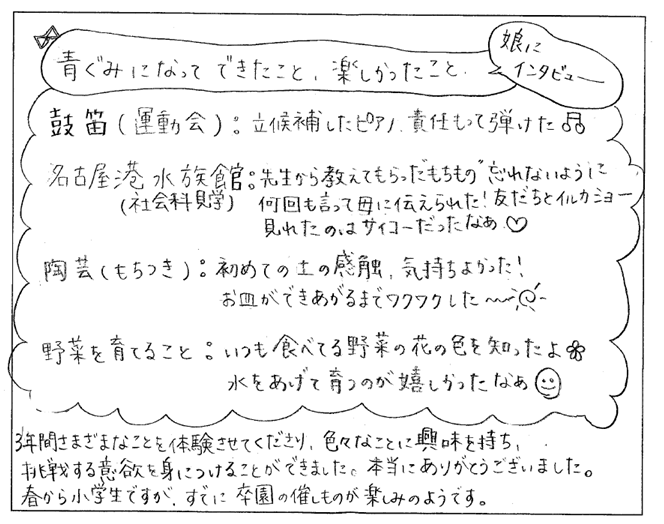 青ぐみになって できたこと、楽しかったこと.
娘に
インタビュー
鼓笛(運動会):立候補したピアノ、責任もって弾けた
名古屋港水族館:先生から教えてもらった"もちもの"忘れないように
(社会科見学) 何回も言って母に伝えられた!友だちとイルカショー
見れたのはサイコーだったなぁ♡
陶芸(もちつき):初めての土の感触、気持ちよかった!
お皿ができあがるまでワクワクした〜
野菜を育てること:いつも食べてる野菜の花の色を知ったよ
水をあげて育つのが嬉しかったなぁ
3年間さまざまなことを体験させてくださり、色々なことに興味を持ち、
挑戦する意欲を身につけることができました。本当にありがとうございました。
春から小学生ですが、すでに卒園の催しものが楽しみのようです。